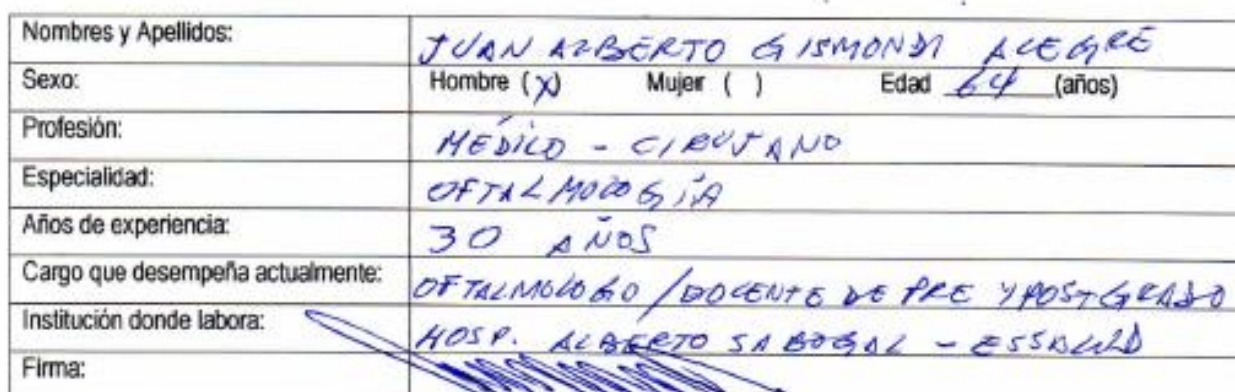 Nombres y Apellidos: JUAN ALBERTO GISMONDI ALEGRE
Sexo: Hombre (X) Mujer ( ) Edad 64 (años)
Profesión: MÉDICO - CIRUJANO
Especialidad: OFTALMOLOGÍA
Años de experiencia: 30 AÑOS
Cargo que desempeña actualmente: OFTALMOLOGO / DOCENTE DE PRE Y POSTGRADO
Institución donde labora: HOSP. ALBERTO SABOGAL - ESSALUD
Firma: